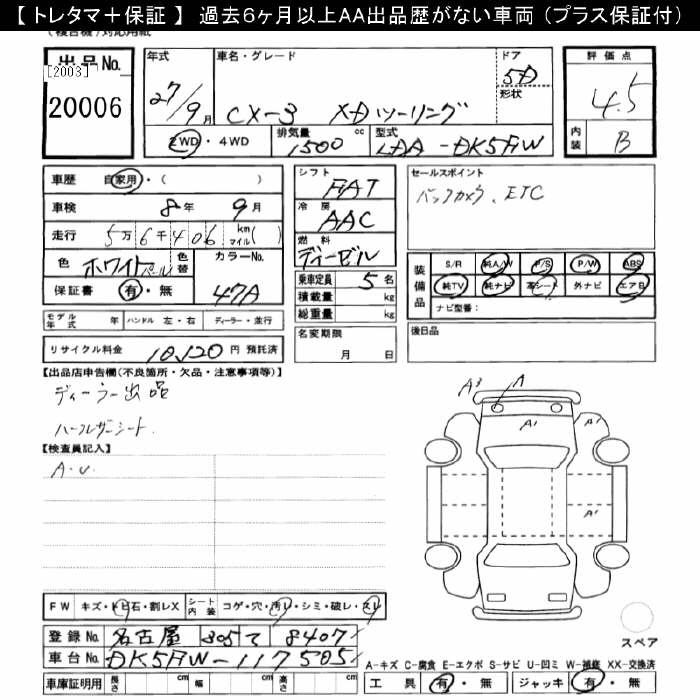 【 トレタマ＋保証 】 過去６ヶ月以上ＡＡ出品歴がない車両（プラス保証付）
出品No.
[2003]
20006
年式 27/9月
車名・グレード
CX-3 XDツーリング
ドア 5D
形状
2WD・4WD
排気量 1500 cc
型式 LDA-DK5FW
評価点
4.5
内装 B
車歴 自家用・( )
車検 8年 9月
走行 5万6千406 km マイル( )
色 ホワイトパール
色替
カラーNo.
保証書 有・無
47A
モデル年式 年 ハンドル 左・右 ディーラー・並行
リサイクル料金 10,120 円 預託済
シフト FAT
冷房 AAC
燃料 ディーゼル
乗車定員 5名
積載量 kg
総重量 kg
名変期限
月 日
セールスポイント
バックカメラ、ETC
装備品
S/R 純A/W P/S P/W ABS
純TV 純ナビ 革シート 外ナビ エアB
ナビ型番：
後日品
【出品店申告欄(不良箇所・欠品・注意事項等)】
ディーラー出品
ハーフレザーシート
【検査員記入】
A.U
A3 A
A1 A1
A1
FW キズ・トビ石・割レX シート内装 コゲ・穴・汚レ・シミ・破レ・スレ
登録No. 名古屋 305 て 8407
車台No. DK5FW-117505
車庫証明用 長さ cm 幅 cm 高さ cm
スペア
A-キズ C-腐食 E-エクボ S-サビ U-凹ミ W-補修 XX-交換済
工具 有・無 ジャッキ 有・無